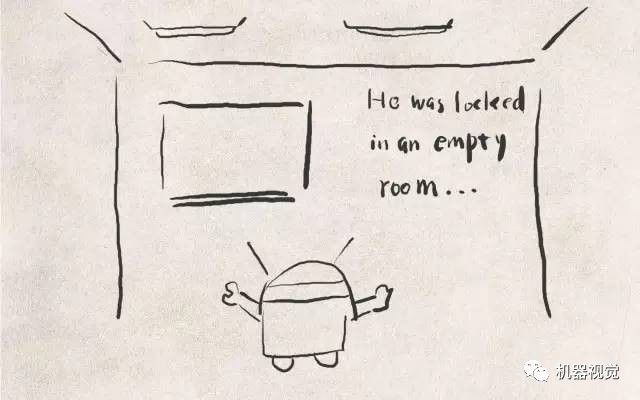 He was locked
in an empty
room...
机器视觉